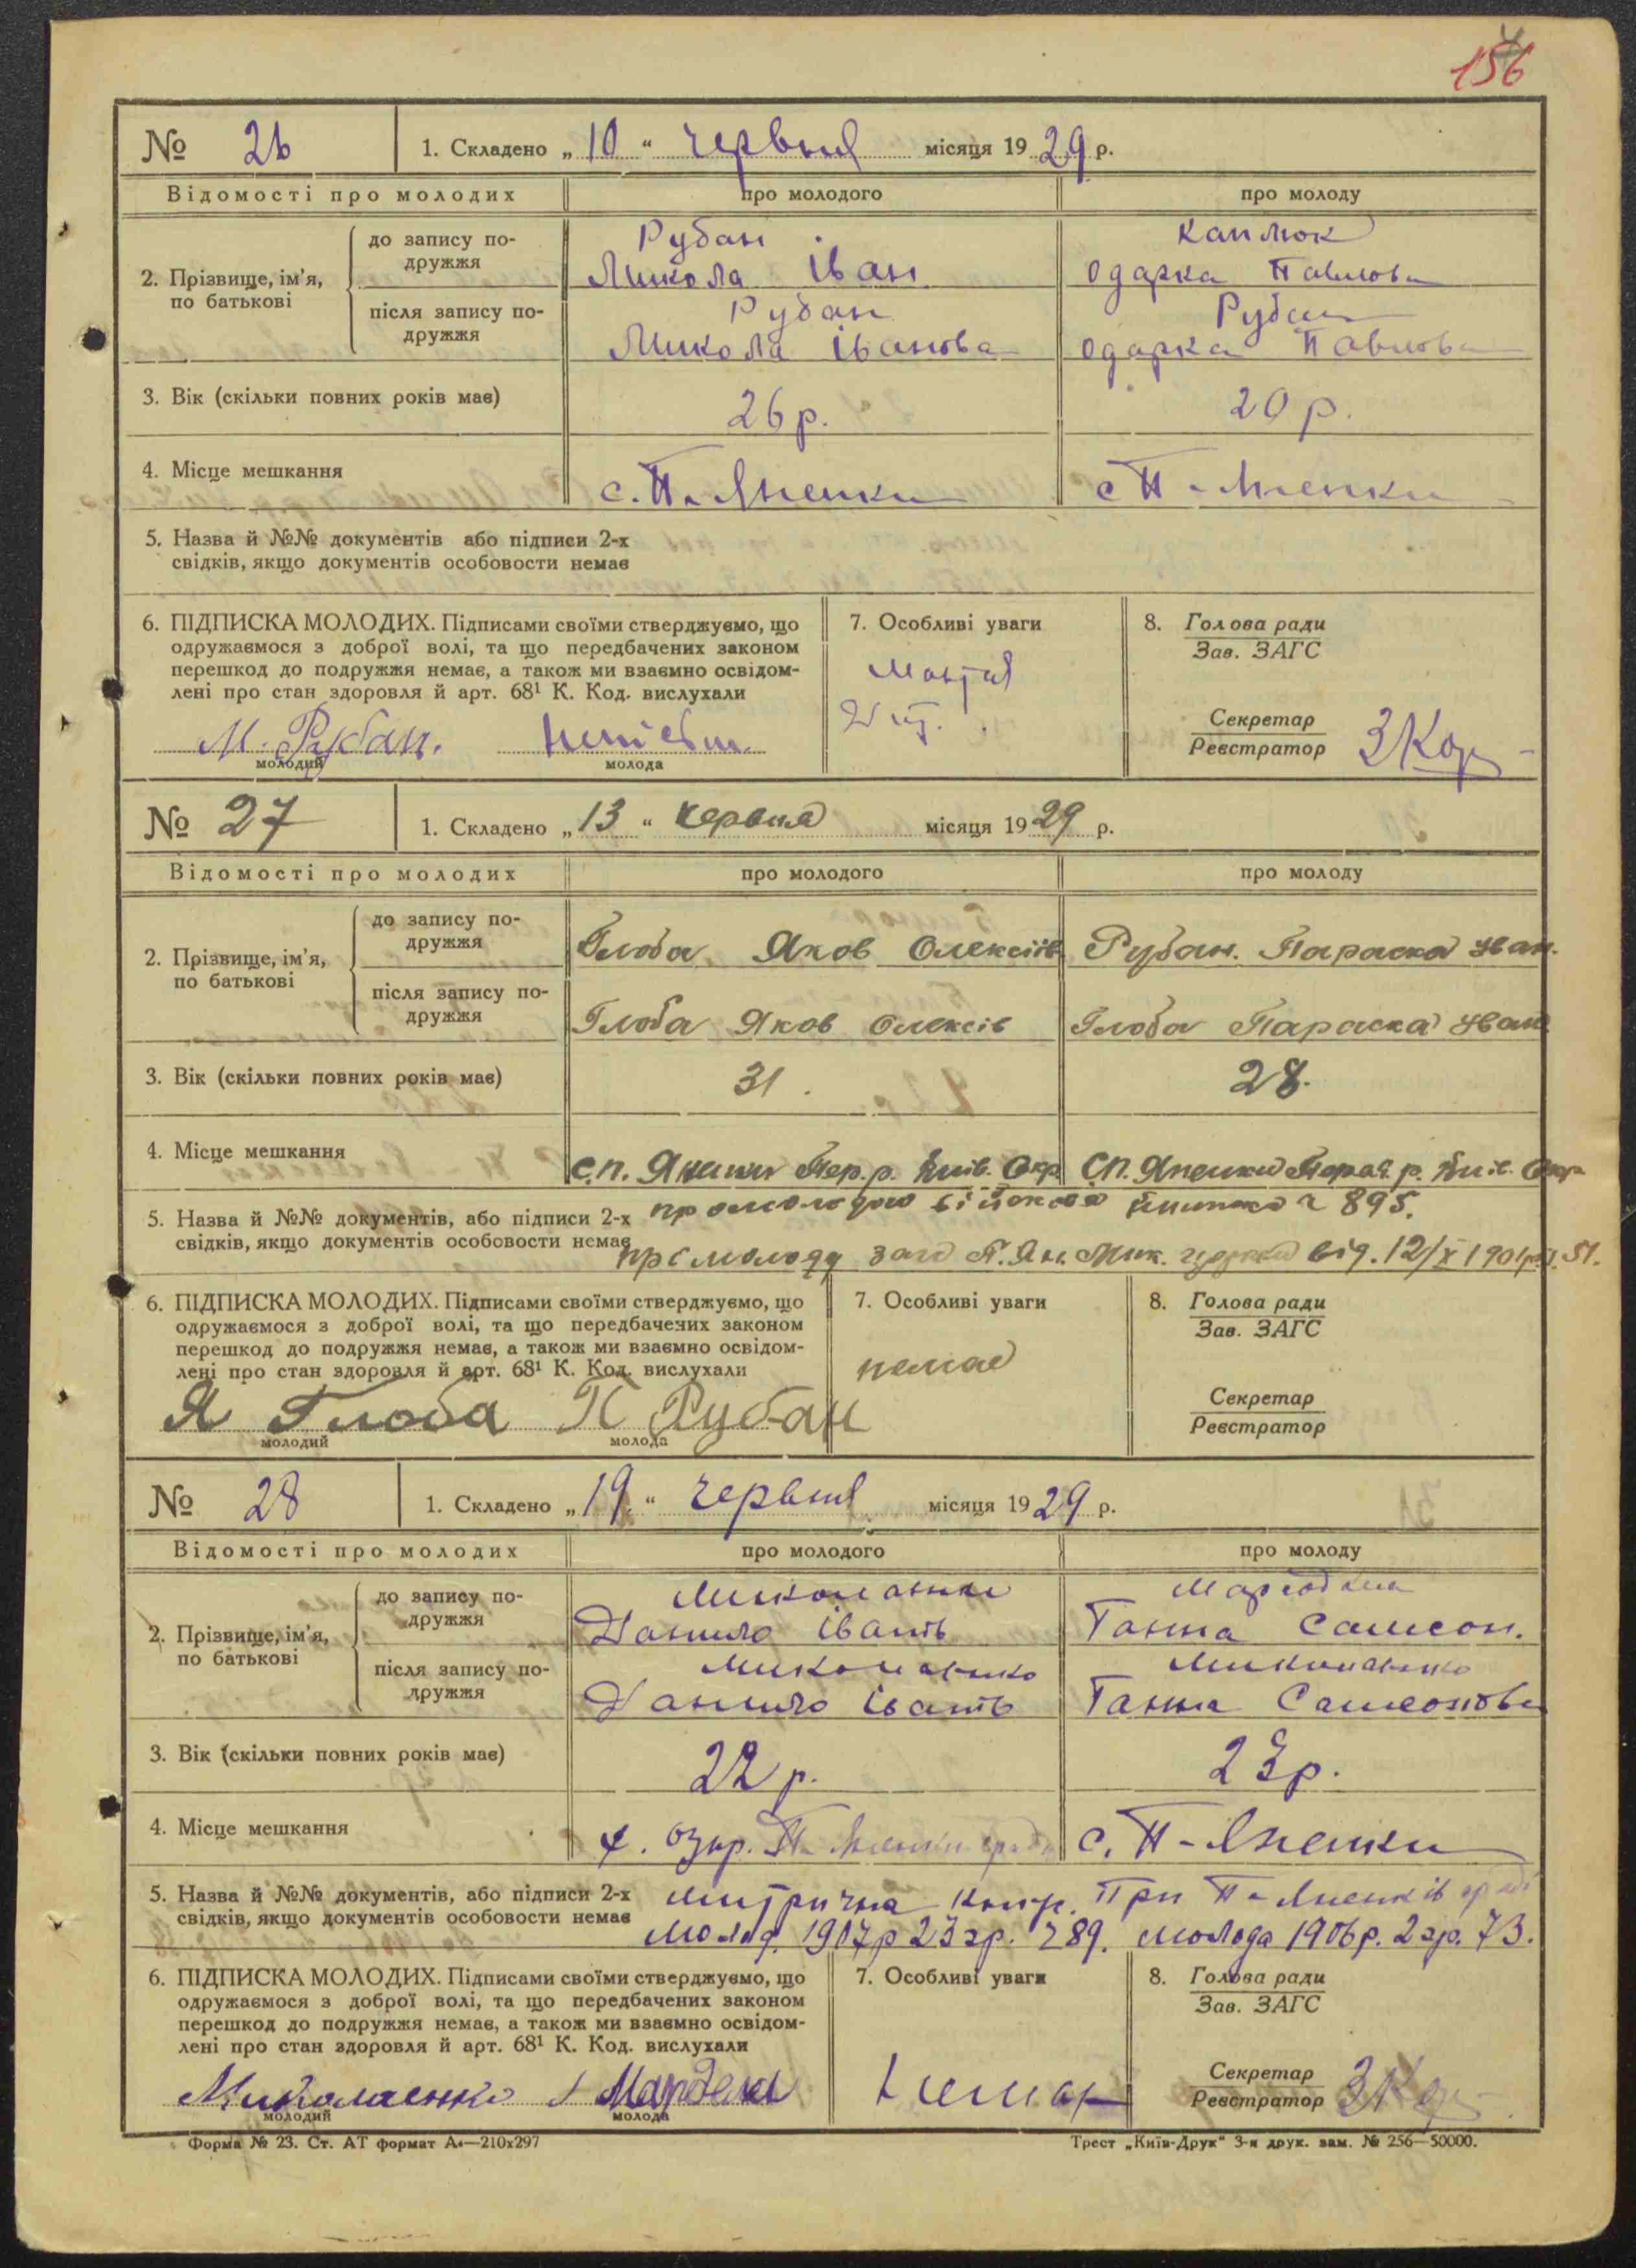 156
№ 26 1. Складено „10“ червня місяця 1929 р.
Відомості про молодих про молодого про молоду
2. Прізвище, ім’я, по батькові
до запису подружжя
Рубан
Микола Іван
Каплюк
Одарка Павлова
після запису подружжя
Рубан
Микола Іванова
Рубан
Одарка Павлова
3. Вік (скільки повних років має) 26 р. 20 р.
4. Місце мешкання с. П-Яненки с П-Яненки
5. Назва й №№ документів або підписи 2-х
свідків, якщо документів особовости немає
6. ПІДПИСКА МОЛОДИХ. Підписами своїми стверджуємо, що
одружаємося з доброї волі, та що передбачених законом
перешкод до подружжя немає, а також ми взаємно освідом-
лені про стан здоровля й арт. 68¹ К. Код. вислухали
М. Рубан.
молодий молода
7. Особливі уваги
8. Голова ради
Зав. ЗАГС
Секретар
Реєстратор
№ 27 1. Складено „13“ червня місяця 1929 р.
Відомості про молодих про молодого про молоду
2. Прізвище, ім’я, по батькові
до запису подружжя
Глоба Яков Олексіїв Рубан. Параска Іван.
після запису подружжя
Глоба Яков Олексів Глоба Параска Іван
3. Вік (скільки повних років має) 31. 28.
4. Місце мешкання С.П. Яненки Пер. р. Київ. Окр С.П. Яненки р. Київ. Окр
5. Назва й №№ документів, або підписи 2-х про молодого військова книжка ч 895.
свідків, якщо документів особовости немає про молоду П. Ян. Мик. від. 12/X 1901р. 51.
6. ПІДПИСКА МОЛОДИХ. Підписами своїми стверджуємо, що
одружаємося з доброї волі, та що передбачених законом
перешкод до подружжя немає, а також ми взаємно освідом-
лені про стан здоровля й арт. 68¹ К. Код. вислухали
Я Глоба П Рубан
молодий молода
7. Особливі уваги
немає
8. Голова ради
Зав. ЗАГС
Секретар
Реєстратор
№ 28 1. Складено „19“ червня місяця 1929 р.
Відомості про молодих про молодого про молоду
2. Прізвище, ім’я, по батькові
до запису подружжя
Данило Івань
Ганна Самсон.
після запису подружжя
Данило Івань
Ганна Самсонова
3. Вік (скільки повних років має) 22 р. 23р.
4. Місце мешкання с. П-Яненки
5. Назва й №№ документів, або підписи 2-х При П-Яненків
свідків, якщо документів особовости немає Молод. 1907р 23 гр. ч 89. молода 1906 р. 2 гр. 73.
6. ПІДПИСКА МОЛОДИХ. Підписами своїми стверджуємо, що
одружаємося з доброї волі, та що передбачених законом
перешкод до подружжя немає, а також ми взаємно освідом-
лені про стан здоровля й арт. 68¹ К. Код. вислухали
Миколаенко
молодий молода
7. Особливі уваги
8. Голова ради
Зав. ЗАГС
Секретар
Реєстратор
Форма № 23. Ст. АТ формат А₄—210х297 Трест „Київ-Друк“ 3-я друк. зам. № 256—50000.